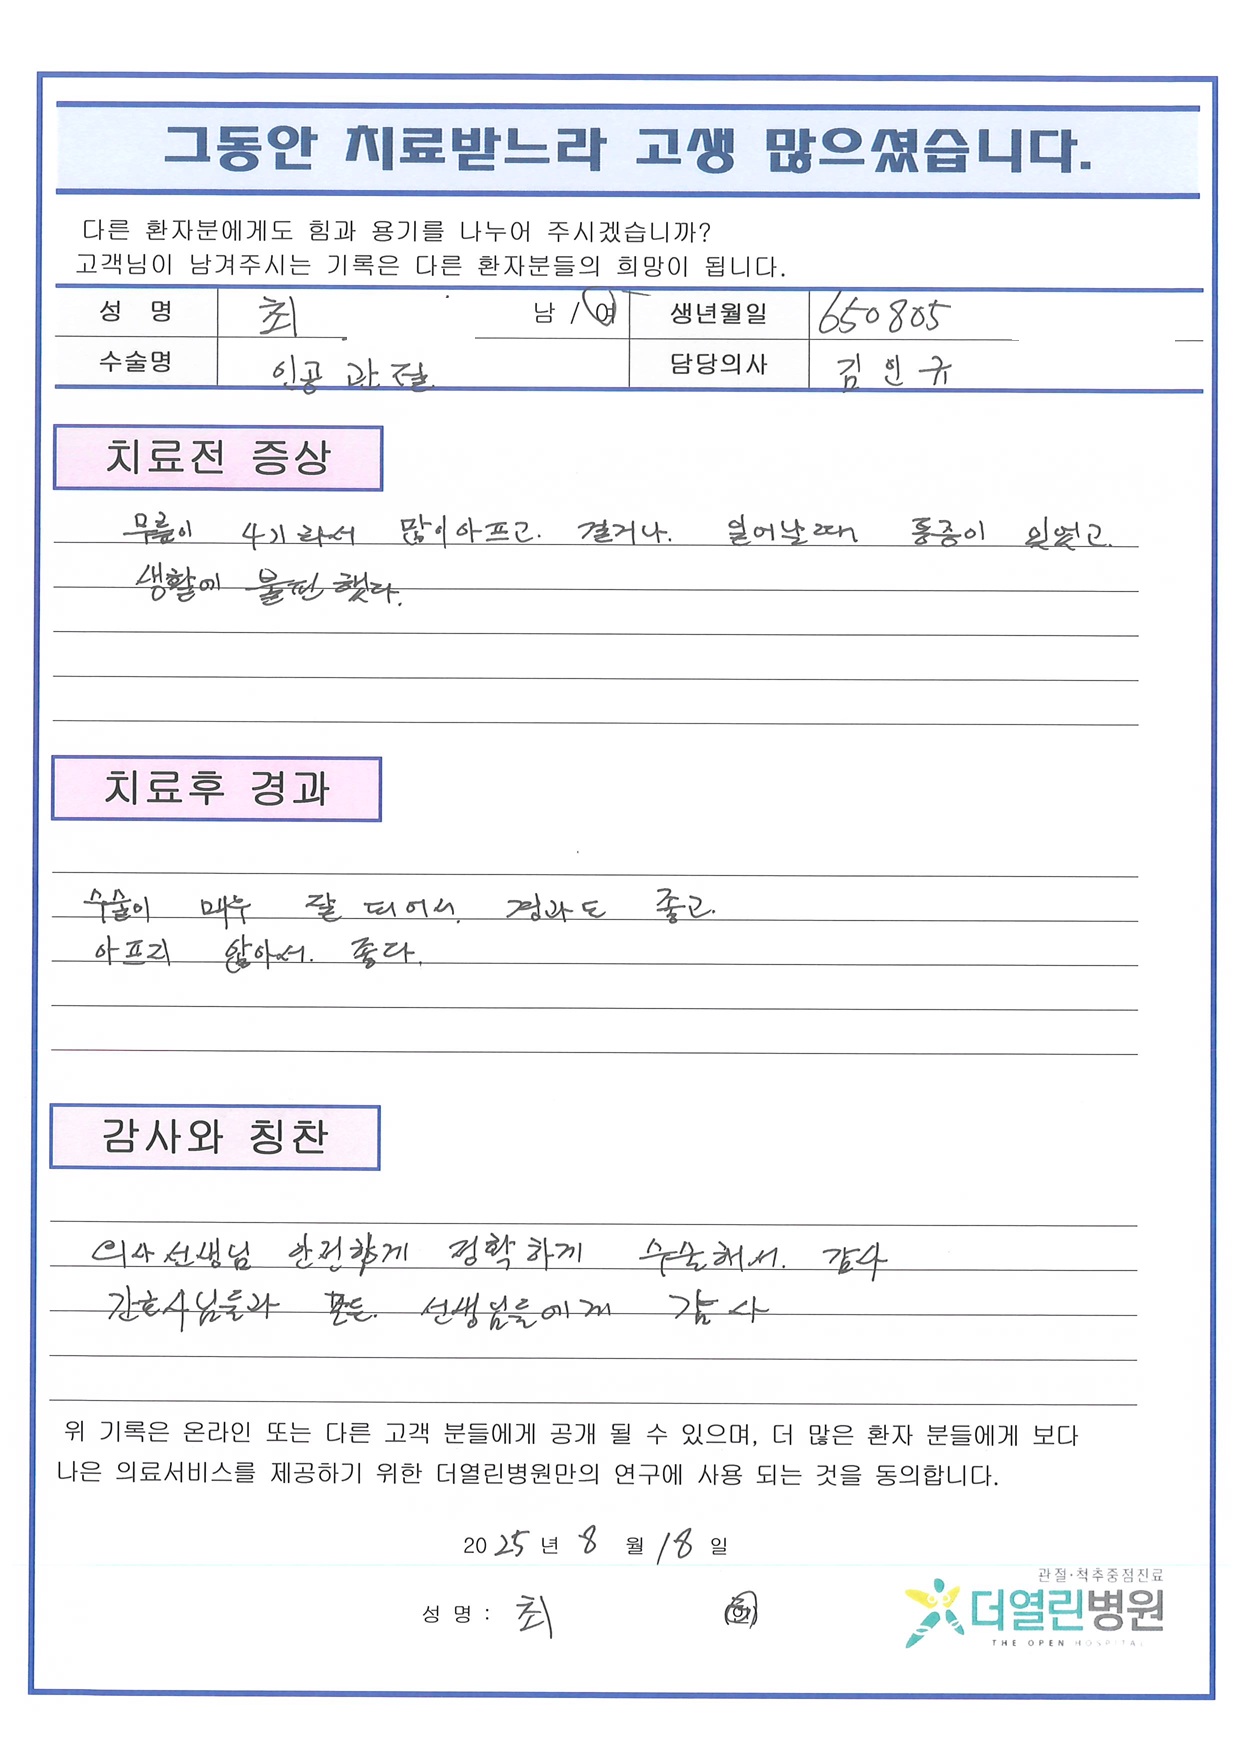 그동안 치료받느라 고생 많으셨습니다.
다른 환자분에게도 힘과 용기를 나누어 주시겠습니까?
고객님이 남겨주시는 기록은 다른 환자분들의 희망이 됩니다.
성 명 최 남 / 여 생년월일 650805
수술명 인공관절 담당의사 김인규
치료전 증상
무릎이 4기라서 많이아프고. 걷거나. 일어날때 통증이 있었고.
생활에 불편했다.
치료후 경과
수술이 매우 잘 되어서. 경과도 좋고.
아프리 않아서. 좋다.
감사와 칭찬
의사선생님 안전하게 정확하게 수술해서. 감사
간호사님들과 모든. 선생님들에게 감사
위 기록은 온라인 또는 다른 고객 분들에게 공개 될 수 있으며, 더 많은 환자 분들에게 보다
나은 의료서비스를 제공하기 위한 더열린병원만의 연구에 사용 되는 것을 동의합니다.
2025년 8 월 18 일
성 명 : 최 (인)
관절·척추중점진료
더열린병원
THE OPEN HOSPITAL